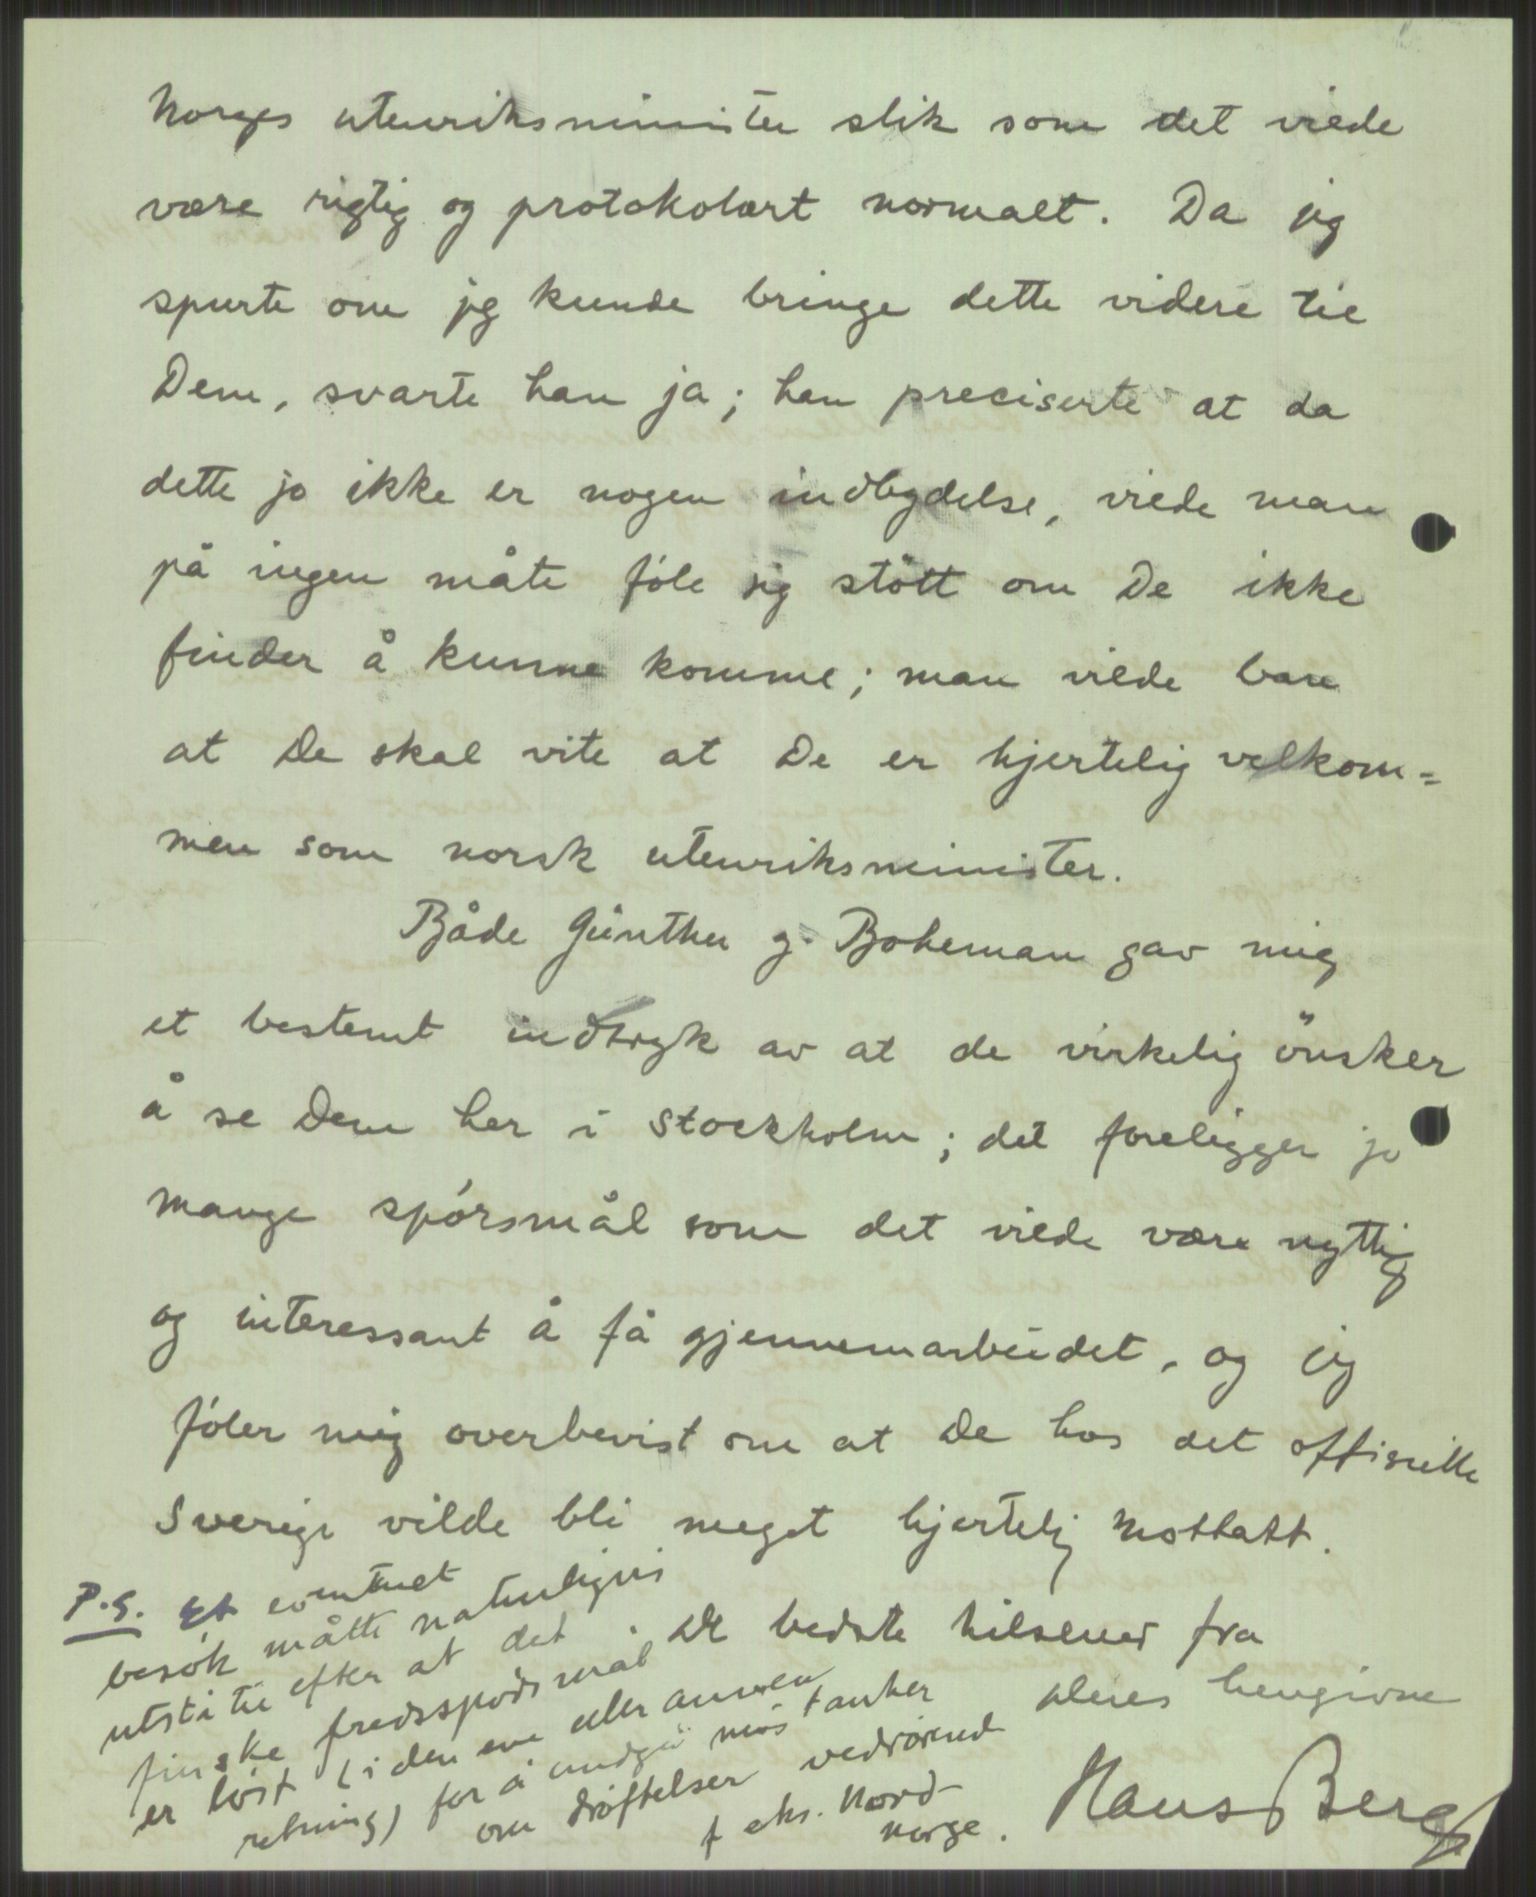 Norges utenriksminister slik som det vilde
være rigtig og protokolært normalt. Da jeg
spurte om jeg kunde bringe dette videre til
Dem, svarte han ja; han preciserte at da
dette jo ikke er nogen indbydelse, vilde man
på ingen måte føle sig støtt om De ikke
finder å kunne komme; man vilde bare
at De skal vite at De er hjertelig velkom=
men som norsk utenriksminister.
Både Günther og Boheman gav mig
et bestemt indtryk av at de virkelig ønsker
å se Dem her i Stockholm; det foreligger jo
mange spørsmål som det vilde være nyttig
og interessant å få gjennemarbeidet, og jeg
føler mig overbevist om at De hos det offisielle
Sverige vilde bli meget hjertelig mottatt.
De bedste hilsener fra
Deres hengivne
Hans Berg
P.S. Et eventuelt
besøk måtte naturligvis
utstå til efter at det
finske fredsspørsmål
er løst (i den ene eller annen
retning) for å undgå mistanker
om drøftelser vedrørende
f eks. Nord-
norge.